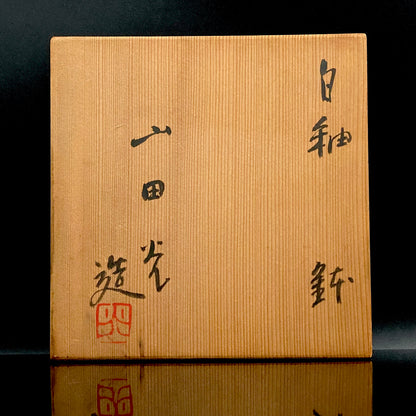 白釉 鉢
山田光 造